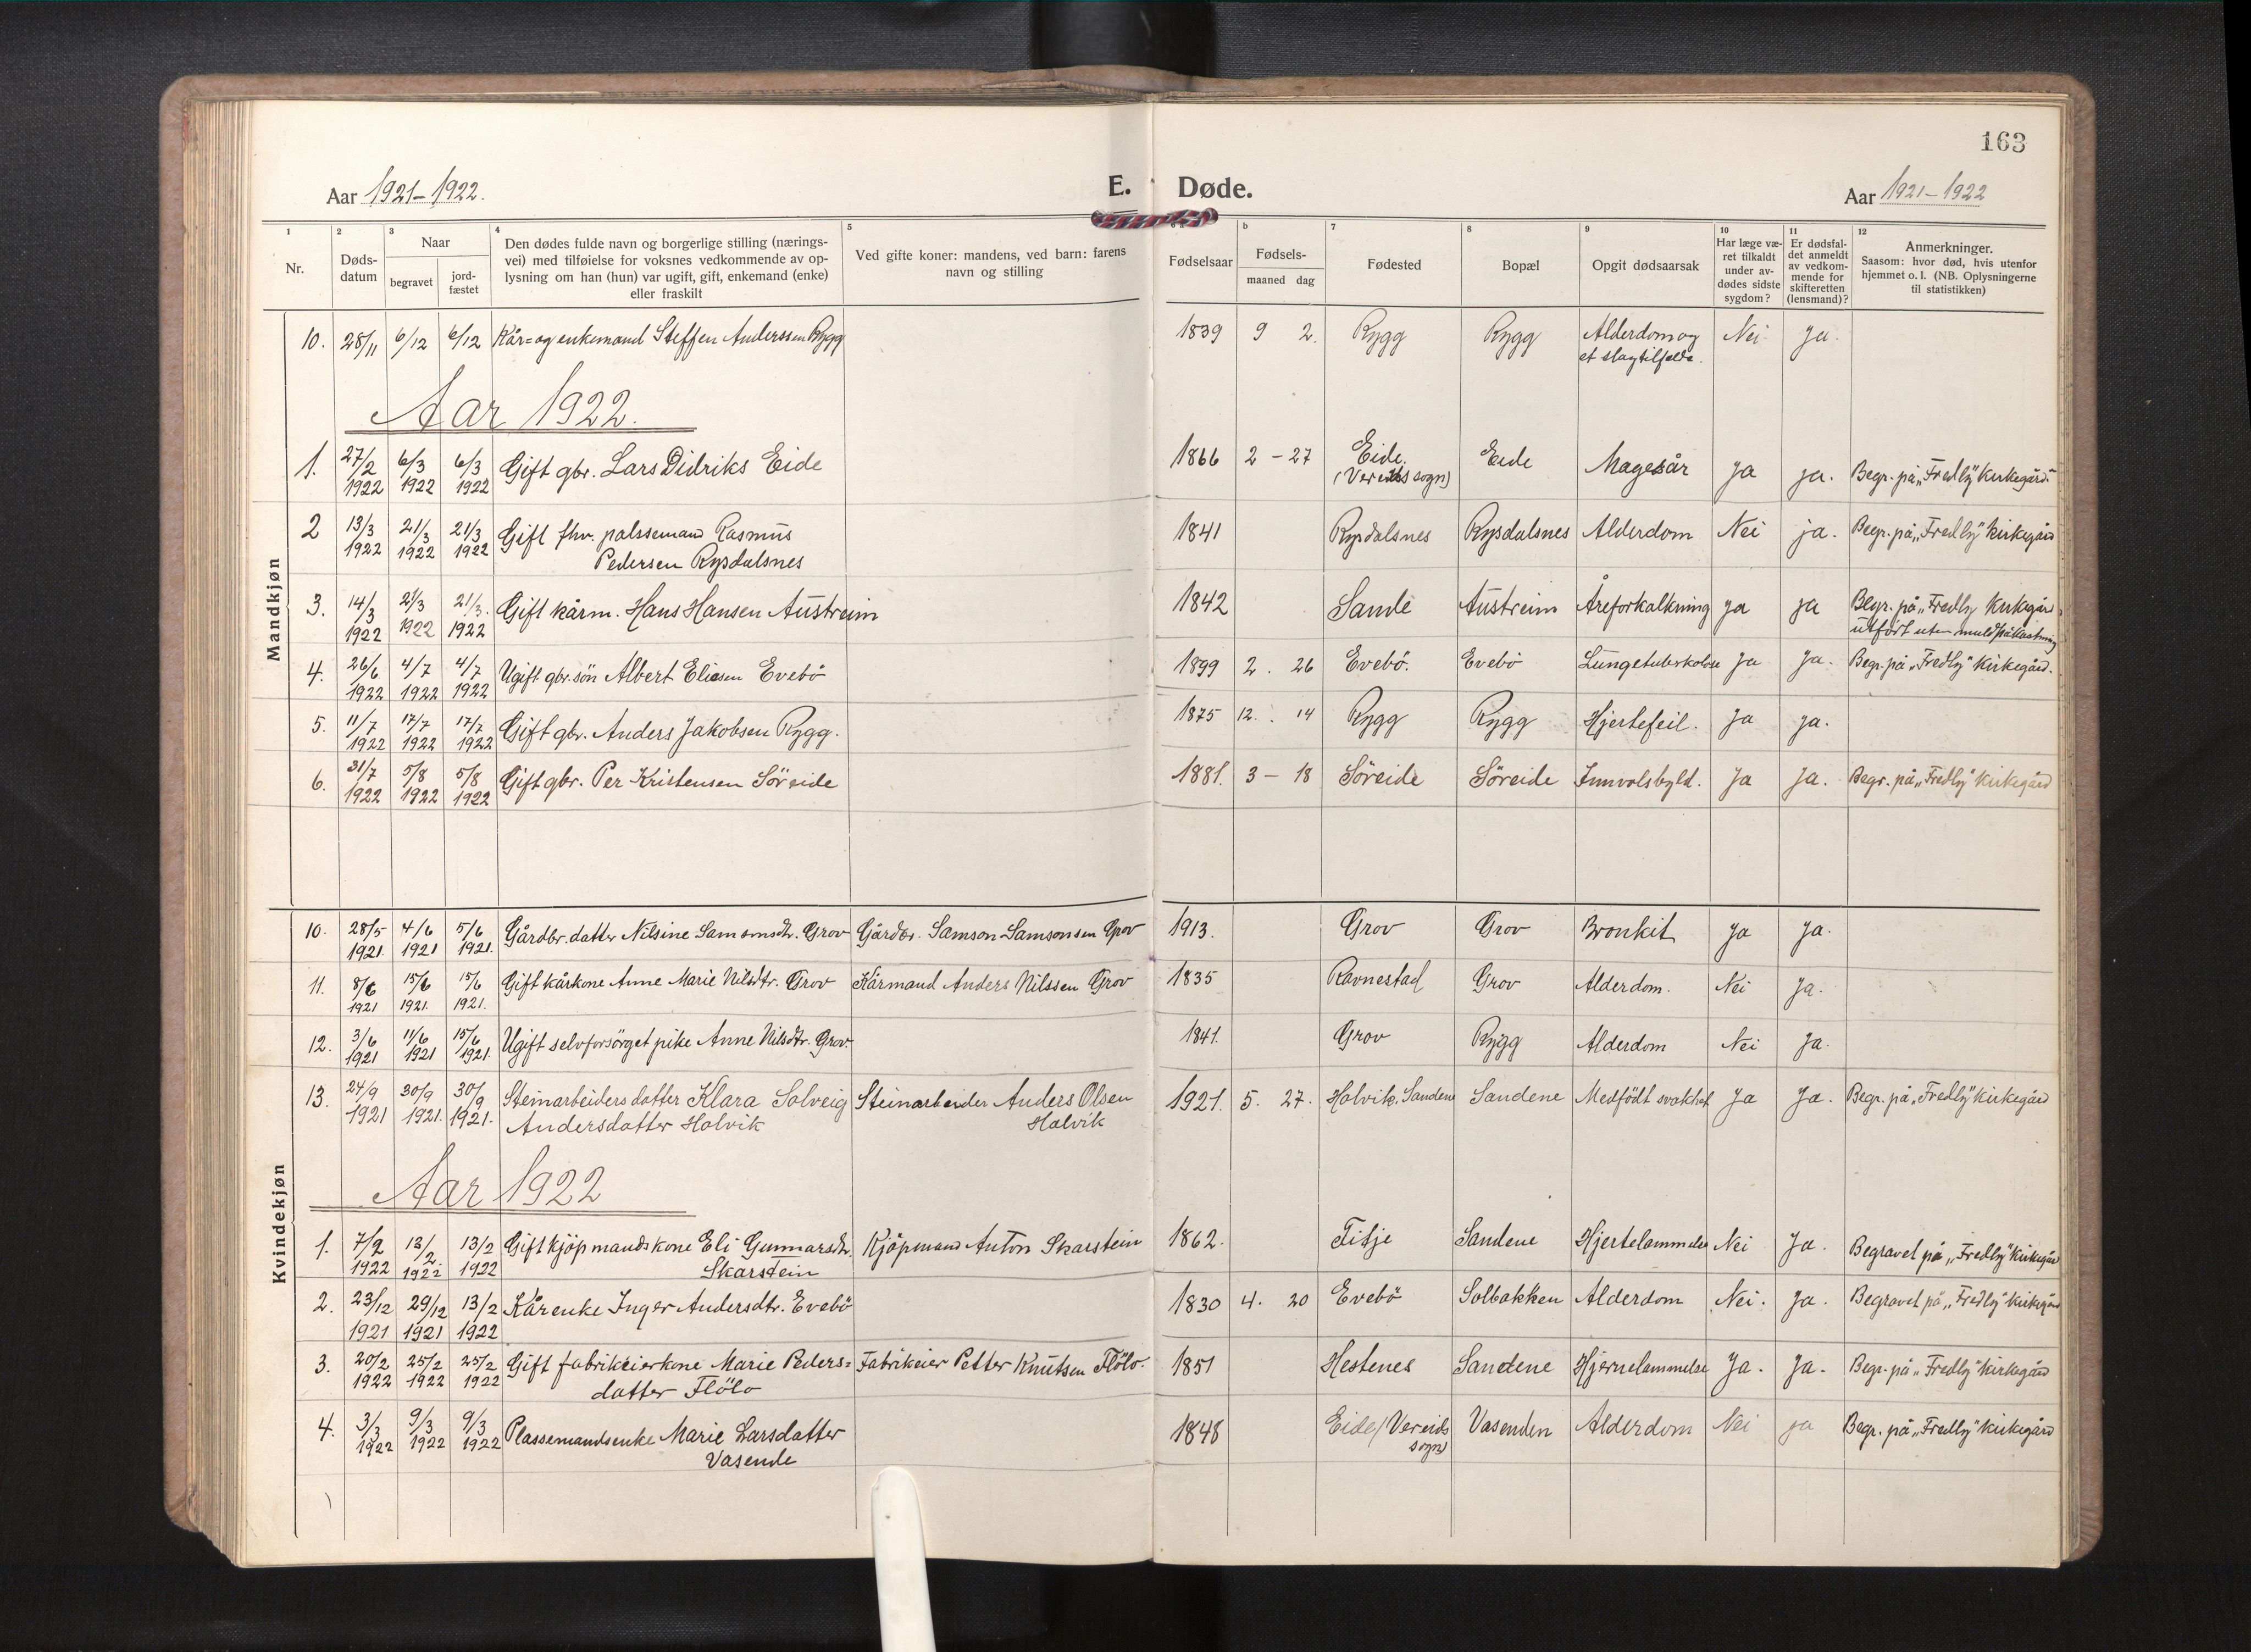 163
Aar 1921-1922.
E. Døde.
Aar 1921-1922
1 2 3 4 5 b 7 8 9 10 11 12
Nr.
Døds-
datum
Naar
begravet
jord-
fæstet
Den dødes fulde navn og borgerlige stilling (nærings-
vei) med tilføielse for voksnes vedkommende av op-
lysning om han (hun) var ugift, gift, enkemand (enke)
eller fraskilt
Ved gifte koner: mandens, ved barn: farens
navn og stilling
Fødselsaar
Fødsels-
maaned dag
Fødested
Bopæl
Opgit dødsaarsak
Har læge væ-
ret tilkaldt
under av-
dødes sidste
sygdom?
Er dødsfal-
det anmeldt
av vedkom-
mende for
skifteretten
(lensmand)?
Anmerkninger.
Saasom: hvor død, hvis utenfor
hjemmet o. l. (NB. Oplysningerne
til statistikken)
Mandkjøn
10. 28/11 6/12 6/12 Kår= og enkemand Steffen Anderssen Rygg 1839 9 2. Rygg Rygg Alderdom og Nei. ja.
et slagtilfelde.
Aar 1922.
1. 27/2 6/3 6/3 Gift gbr. Lars Didriks Eide 1866 2 - 27 Eide. Eide Magesår ja ja. Begr. på „Fredly" kirkegård.
1922 1922 1922 (Vereids sogn)
2 13/3 21/3 21/3 Gift fhv. palssemand Rasmus 1841 Rysdalsnes Rysdalsnes Alderdom Nei ja. Begr. på „Fredly" kirkegård
1922 1922 1922 Pedersen Rysdalsnes
3. 14/3 21/3 21/3. Gift kårm. Hans Hansen Austreim 1842 Sande Austreim Åreforkalkning ja ja Begr. på „Fredly kirkegård
1922 1922 1922 utført uten muldpåkastning
4. 26/6 4/7 4/7 Ugift gbr.søn Albert Eliasen Evebö 1899 2. 26 Evebö. Evebö Lungetuberkolose ja ja. Begr. på „Fredly" kirkegård.
1922 1922 1922
5. 11/7 17/7 17/7 Gift gbr. Anders Jakobsen Rygg. 1875 12. . 14 Rygg Rygg Hjertefeil. ja ja.
1922 1922 1922
6. 31/7 5/8 5/8 Gift gbr. Per Kristensen Söreide 1881. 3 - 18 Söreide Söreide Innvolsbyld. ja ja. Begr. på „Fredly" kirkegård
1922 1922 1922
Kvindekjøn
10. 28/5 4/6 5/6 Gårdbr. datter Nilsine Samsonsdtr. Grov Gårdbr. Samson Samsonsen Grov 1913. Grov Grov Bronkit ja ja.
1921. 1921 1921.
11. 8/6 15/6 15/6 Gift kårkone Anne Marie Nilsdtr. Grov Kårmand Anders Nilssen Grov 1835 Ravnestad Grov Alderdom. Nei ja.
1921 1921. 1921.
12. 3/6 11/6 15/6 Ugift selvforsörget pike Anne Nilsdtr. Grov. 1841. Grov Rygg Alderdom Nei ja.
1921 1921 1921.
13. 24/9 30/9 30/9 Steinarbeiders datter Klara Solveig Steinarbeider Anders Olsen 1921. 5. 27. Holvik. Sandene Sandene Medfödt svakhet ja ja. Begr. på „Fredly" kirkegård
1921 1921. 1921. Andersdatter Holvik Holvik
Aar 1922
1. 7/2 13/2 13/2 Gift kjöpmandskone Eli Gunnarsdtr. Kjöpmand Anton Skarstein 1862. Fitje Sandene Hjertelammelse Nei ja. Begravet på „Fredly" kirkegård
1922 1922 1922 Skarstein
2. 23/12 29/12 13/2 Kårenke Inger Andersdtr. Evebö 1830 4. 20 Evebö Solbakken Alderdom Nei. ja. Begravet på „Fredly" kirkegård
1921 1921 1922
3. 20/2 25/2 25/2 Gift fabrikeierkone Marie Peders= Fabrikeier Petter Knutsen Flölo. 1851 Hestenes Sandene Hjernelammelse ja. ja. Begr. på „Fredly" kirkegård
1922 1922 1922 datter Flölo
4. 3/3 9/3 9/3 Plassemandsenke Marie Larsdatter 1848 Eide (Vereids Vasenden Alderdom Nei ja Begr. på „Fredly" kirkegård
1922 1922 1922 Vasende sogn)